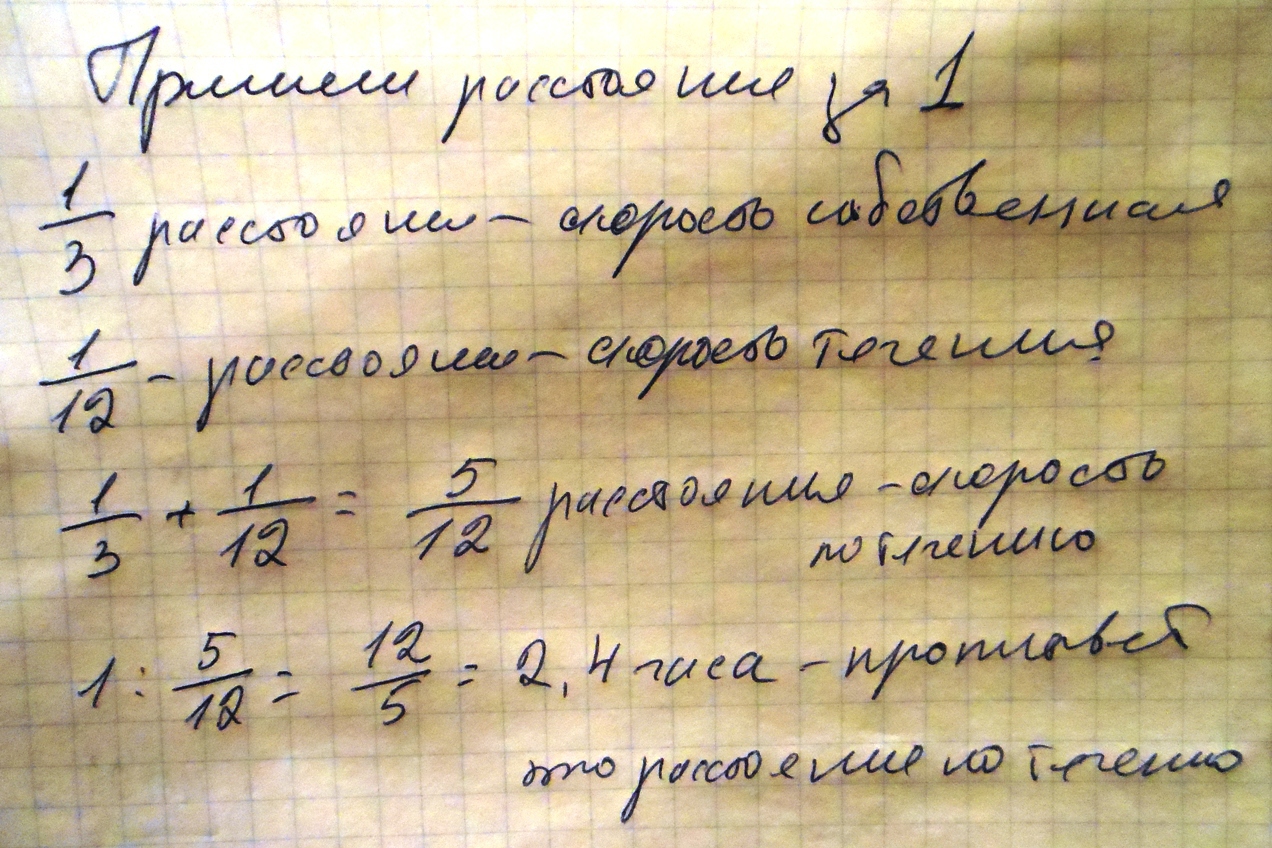 Примем расстояние за 1
1/3 расстояния - скорость собственная
1/12 - расстояния - скорость течения
1/3 + 1/12 = 5/12 расстояния - скорость
по течению
1 : 5/12 = 12/5 = 2,4 часа - проплывёт
это расстояние по течению